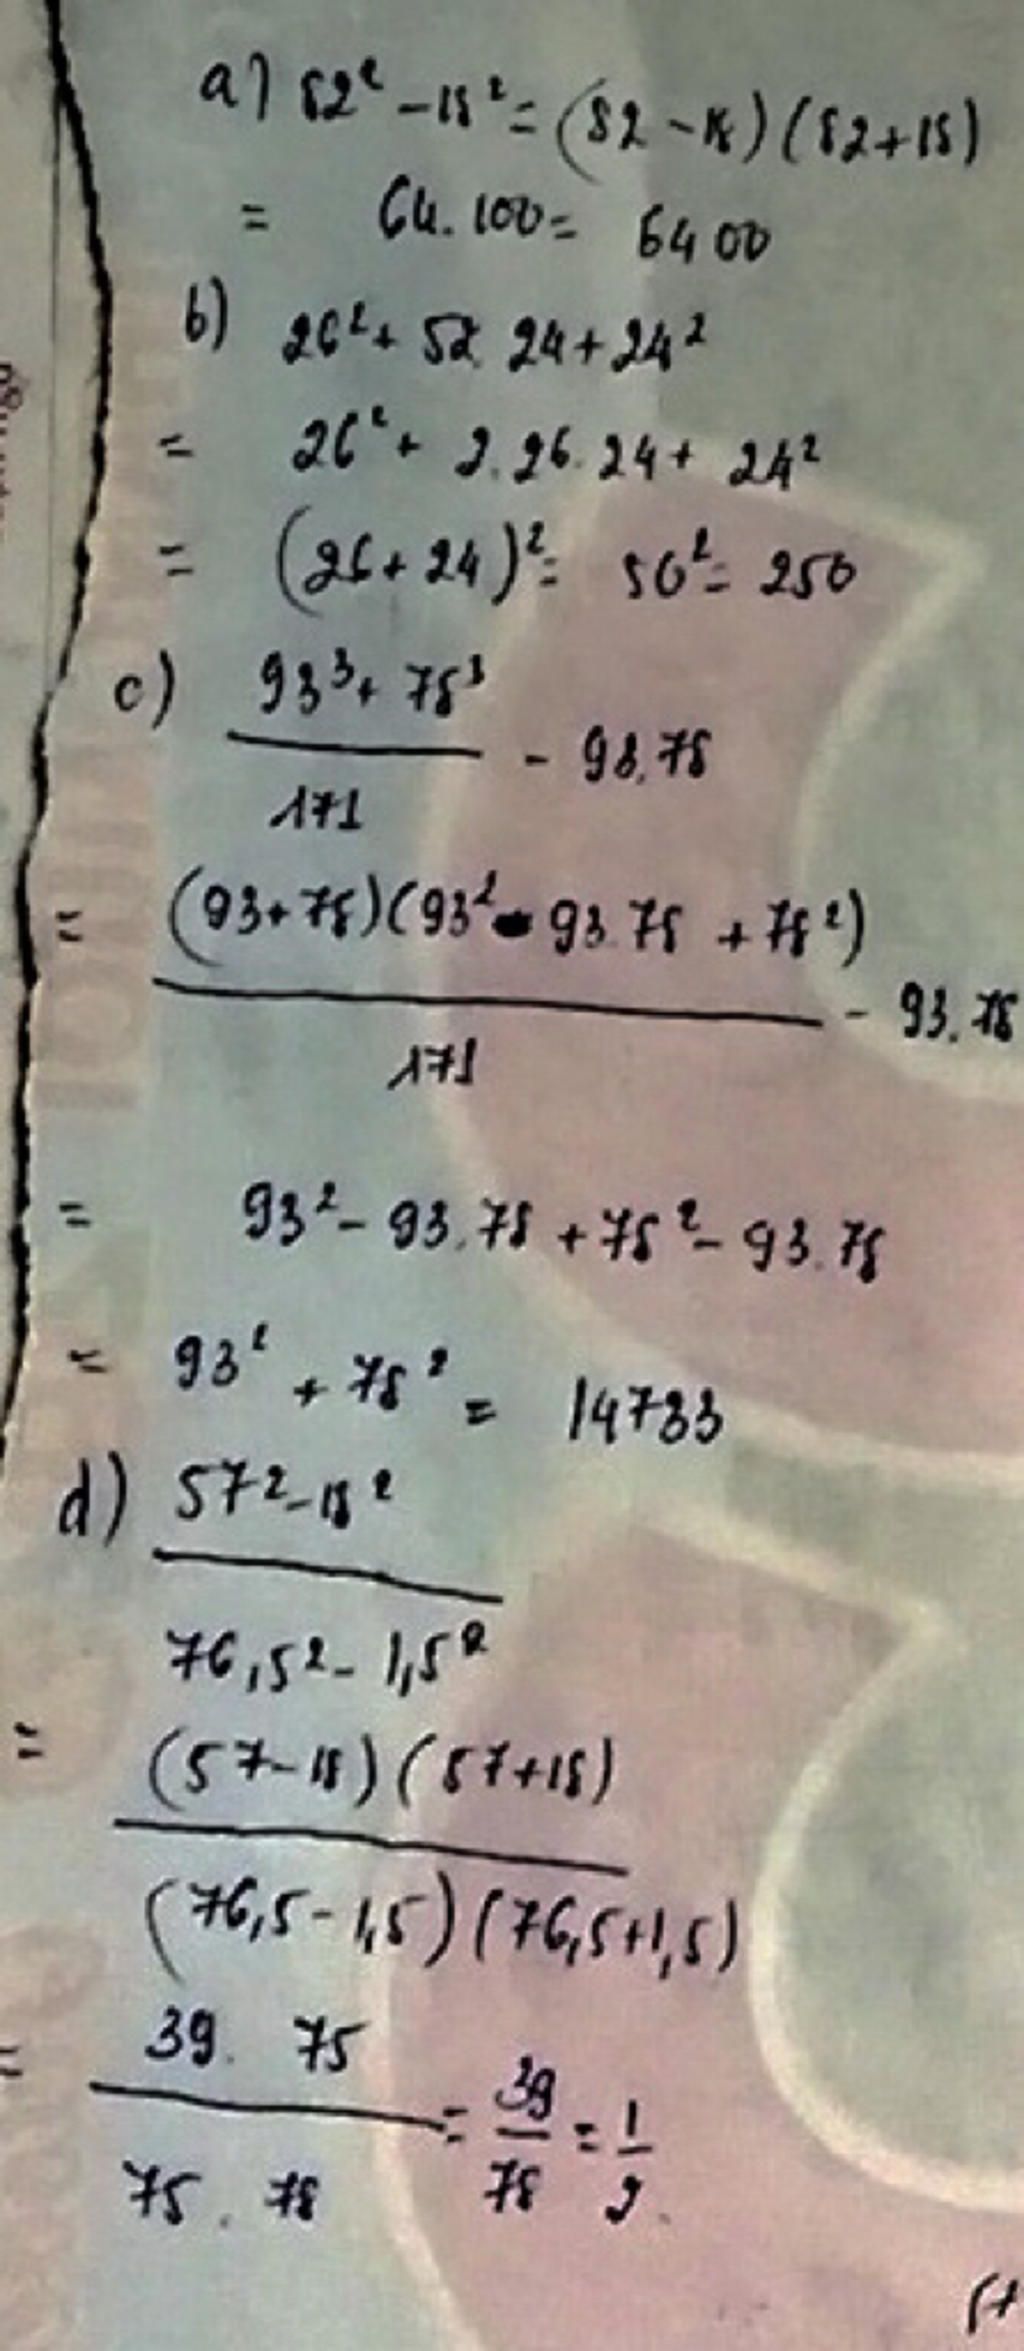 a) 82² - 18² = (82 - 18) (82 + 18)
= 64. 100 = 6400
b) 26² + 52. 24 + 24²
= 26² + 2. 26. 24 + 24²
= (26 + 24)² = 50² = 250
c) 93³ + 78³
- 93.78
171
= (93 + 78) (93² - 93.78 + 78²)
- 93.78
171
= 93² - 93.78 + 78² - 93.78
= 93² + 78² = 14733
d) 57² - 18²
76,5² - 1,5²
= (57 - 18) (57 + 18)
(76,5 - 1,5) (76,5 + 1,5)
= 39. 75
= 39 = 1
75. 78
78 2.